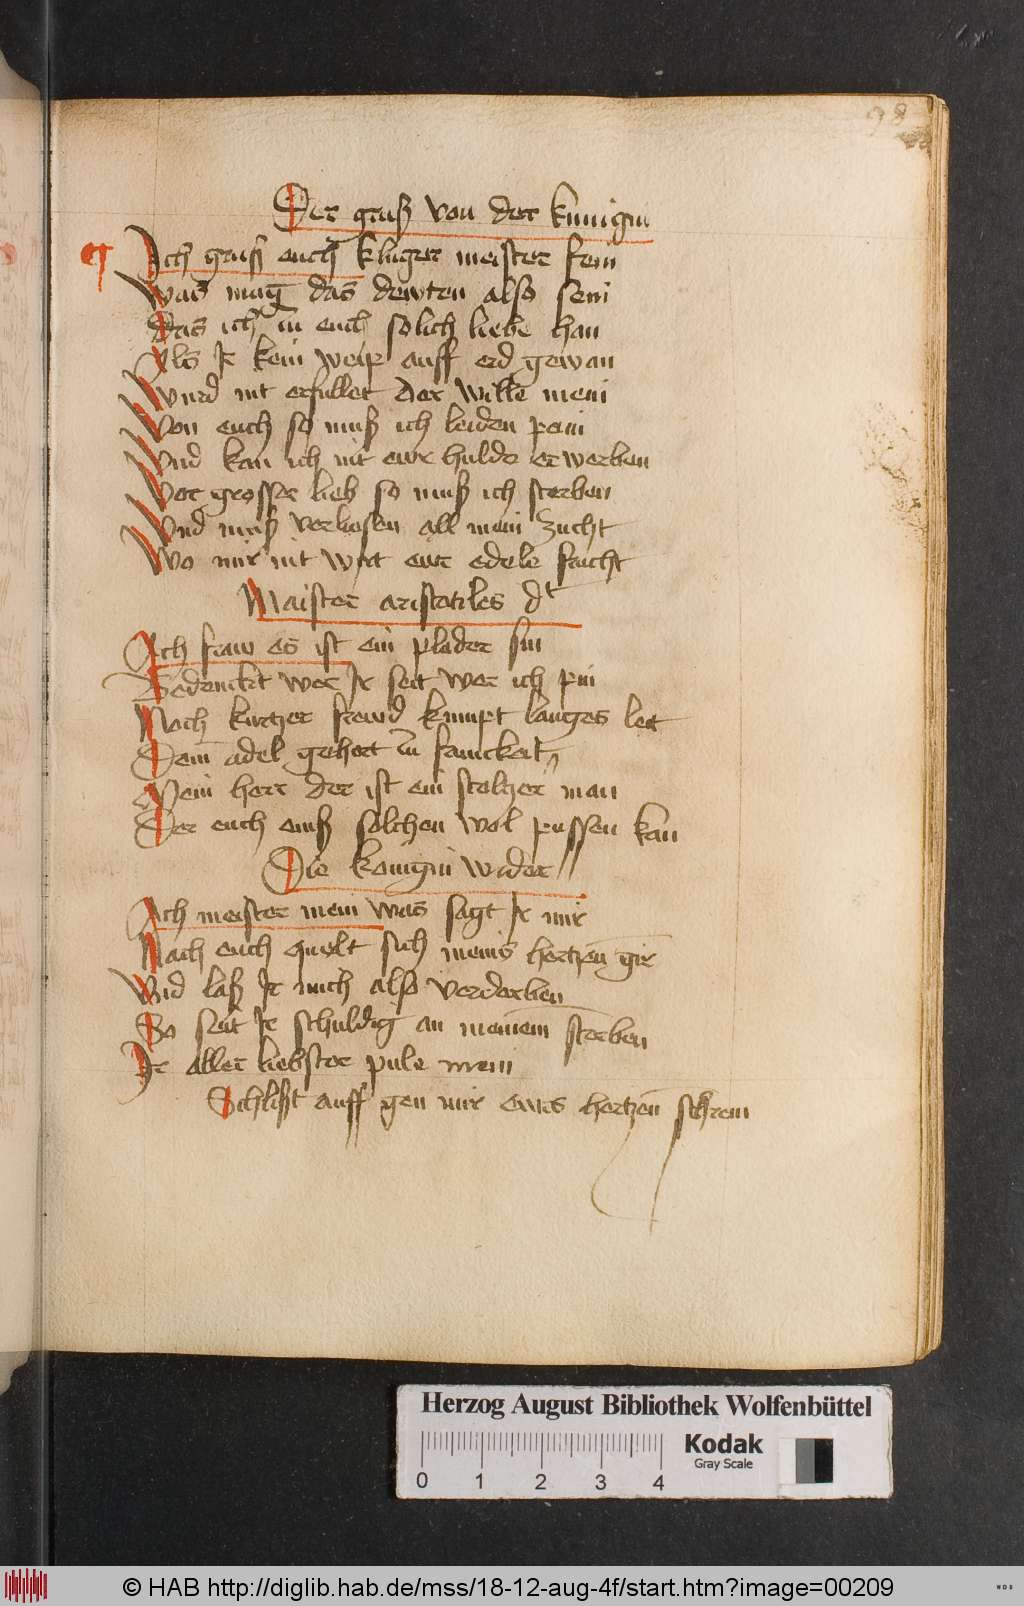 98
Der gruß von der kunigin
Ich gruß euch kluger meister fein
Was mag das dewten also sein
Das ich zu euch solich liebe han
Als Ir kein weip auff erd gewan
Wurd nit erfullet der wille mein
Von euch so muß ich leiden pein
Vnd kan ich nit ewr hulde erwerben
Vor grosser lieb so muß ich sterben
Vnd muß verliesen all mein zucht
Wo mir nit wirt ewr edele frucht
Maister aristotiles dt
Ach fraw es ist ein plader sin
Bedenckt wer Ir seit wer ich pin
Noch kurtzer frewd kumpt langes leit
Dem adel gehort zu
Mein herr der ist ein stoltzer man
Der euch eins solchen wol pussen kan
Die konigin wider
Ach meister mein was sagt Ir mir
Nach euch quelt sich meins hertzen gir
Vnd laß Ir mich also verderben
So seit Ir schuldig an meinem sterben
Ir aller liebster pule mein
Schlißt auff gen mir ewrs hertzen schrein
Herzog August Bibliothek Wolfenbüttel
Kodak
Gray Scale
0 1 2 3 4
© HAB http://diglib.hab.de/mss/18-12-aug-4f/start.htm?image=00209